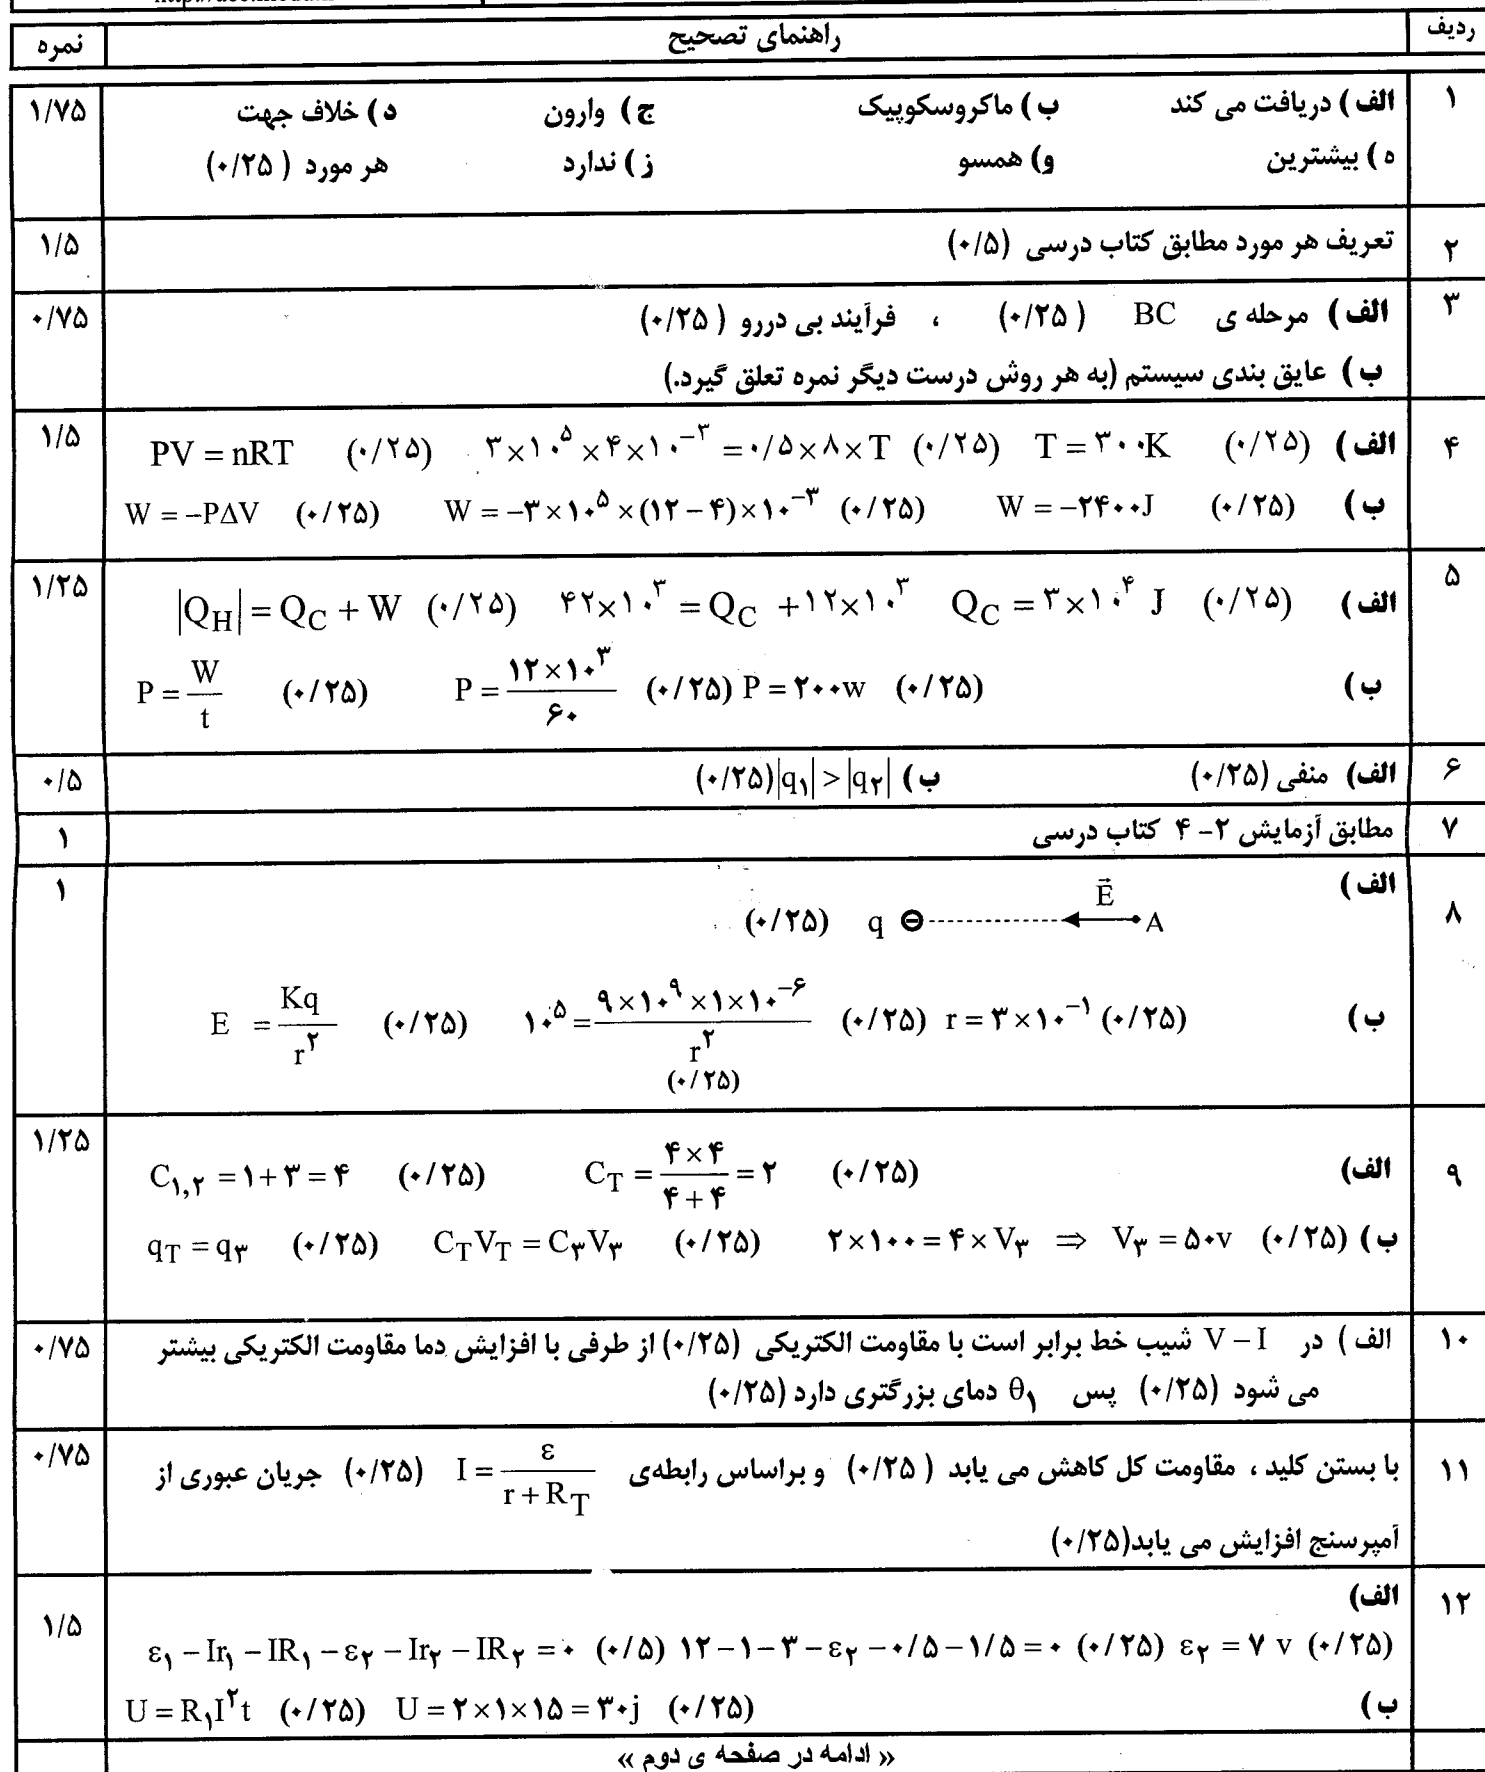 ردیف راهنمای تصحیح نمره
۱ الف) دریافت می کند ب) ماکروسکوپیک ج) وارون د) خلاف جهت ۱/۷۵
ه) بیشترین و) همسو ز) ندارد هر مورد (۰/۲۵)
۲ تعریف هر مورد مطابق کتاب درسی (۰/۵) ۱/۵
۳ الف) مرحله ی BC (۰/۲۵) ، فرآیند بی دررو (۰/۲۵) ۰/۷۵
ب) عایق بندی سیستم (به هر روش درست دیگر نمره تعلق گیرد.)
۴ الف) PV = nRT (۰/۲۵) ۳×۱۰^۵×۴×۱۰^−۳ = ۰/۵×۸×T (۰/۲۵) T = ۳۰۰K (۰/۲۵) ۱/۵
ب) W = −PΔV (۰/۲۵) W = −۳×۱۰^۵×(۱۲−۴)×۱۰^−۳ (۰/۲۵) W = −۲۴۰۰J (۰/۲۵)
۵ الف) |Q_H| = Q_C + W (۰/۲۵) ۴۲×۱۰^۳ = Q_C + ۱۲×۱۰^۳ Q_C = ۳×۱۰^۴ J (۰/۲۵) ۱/۲۵
ب) P = W/t (۰/۲۵) P = ۱۲×۱۰^۳/۶۰ (۰/۲۵) P = ۲۰۰w (۰/۲۵)
۶ الف) منفی (۰/۲۵) ب) |q_۱| > |q_۲| (۰/۲۵) ۰/۵
۷ مطابق آزمایش ۲- ۴ کتاب درسی ۱
۸ الف) ۱
(۰/۲۵) q ⊖ E A
ب) E = Kq/r^۲ (۰/۲۵) ۱۰^۵ = ۹×۱۰^۹×۱×۱۰^−۶/r^۲ (۰/۲۵) r = ۳×۱۰^−۱ (۰/۲۵)
(۰/۲۵)
۹ الف) C_۱,۲ = ۱+۳ = ۴ (۰/۲۵) C_T = ۴×۴/۴+۴ = ۲ (۰/۲۵) ۱/۲۵
ب) q_T = q_۳ (۰/۲۵) C_T V_T = C_۳ V_۳ (۰/۲۵) ۲×۱۰۰ = ۴×V_۳ ⇒ V_۳ = ۵۰v (۰/۲۵)
۱۰ الف) در V − I شیب خط برابر است با مقاومت الکتریکی (۰/۲۵) از طرفی با افزایش دما مقاومت الکتریکی بیشتر ۰/۷۵
می شود (۰/۲۵) پس θ_۱ دمای بزرگتری دارد (۰/۲۵)
۱۱ با بستن کلید ، مقاومت کل کاهش می یابد (۰/۲۵) و براساس رابطه‌ی I = ε/r + R_T (۰/۲۵) جریان عبوری از ۰/۷۵
آمپرسنج افزایش می یابد(۰/۲۵)
۱۲ الف) ۱/۵
ε_۱ − Ir_۱ − IR_۱ − ε_۲ − Ir_۲ − IR_۲ = ۰ (۰/۵) ۱۲ − ۱ − ۳ − ε_۲ − ۰/۵ − ۱/۵ = ۰ (۰/۲۵) ε_۲ = ۷ v (۰/۲۵)
ب) U = R_۱I^۲t (۰/۲۵) U = ۲×۱×۱۵ = ۳۰j (۰/۲۵)
« ادامه در صفحه ی دوم »